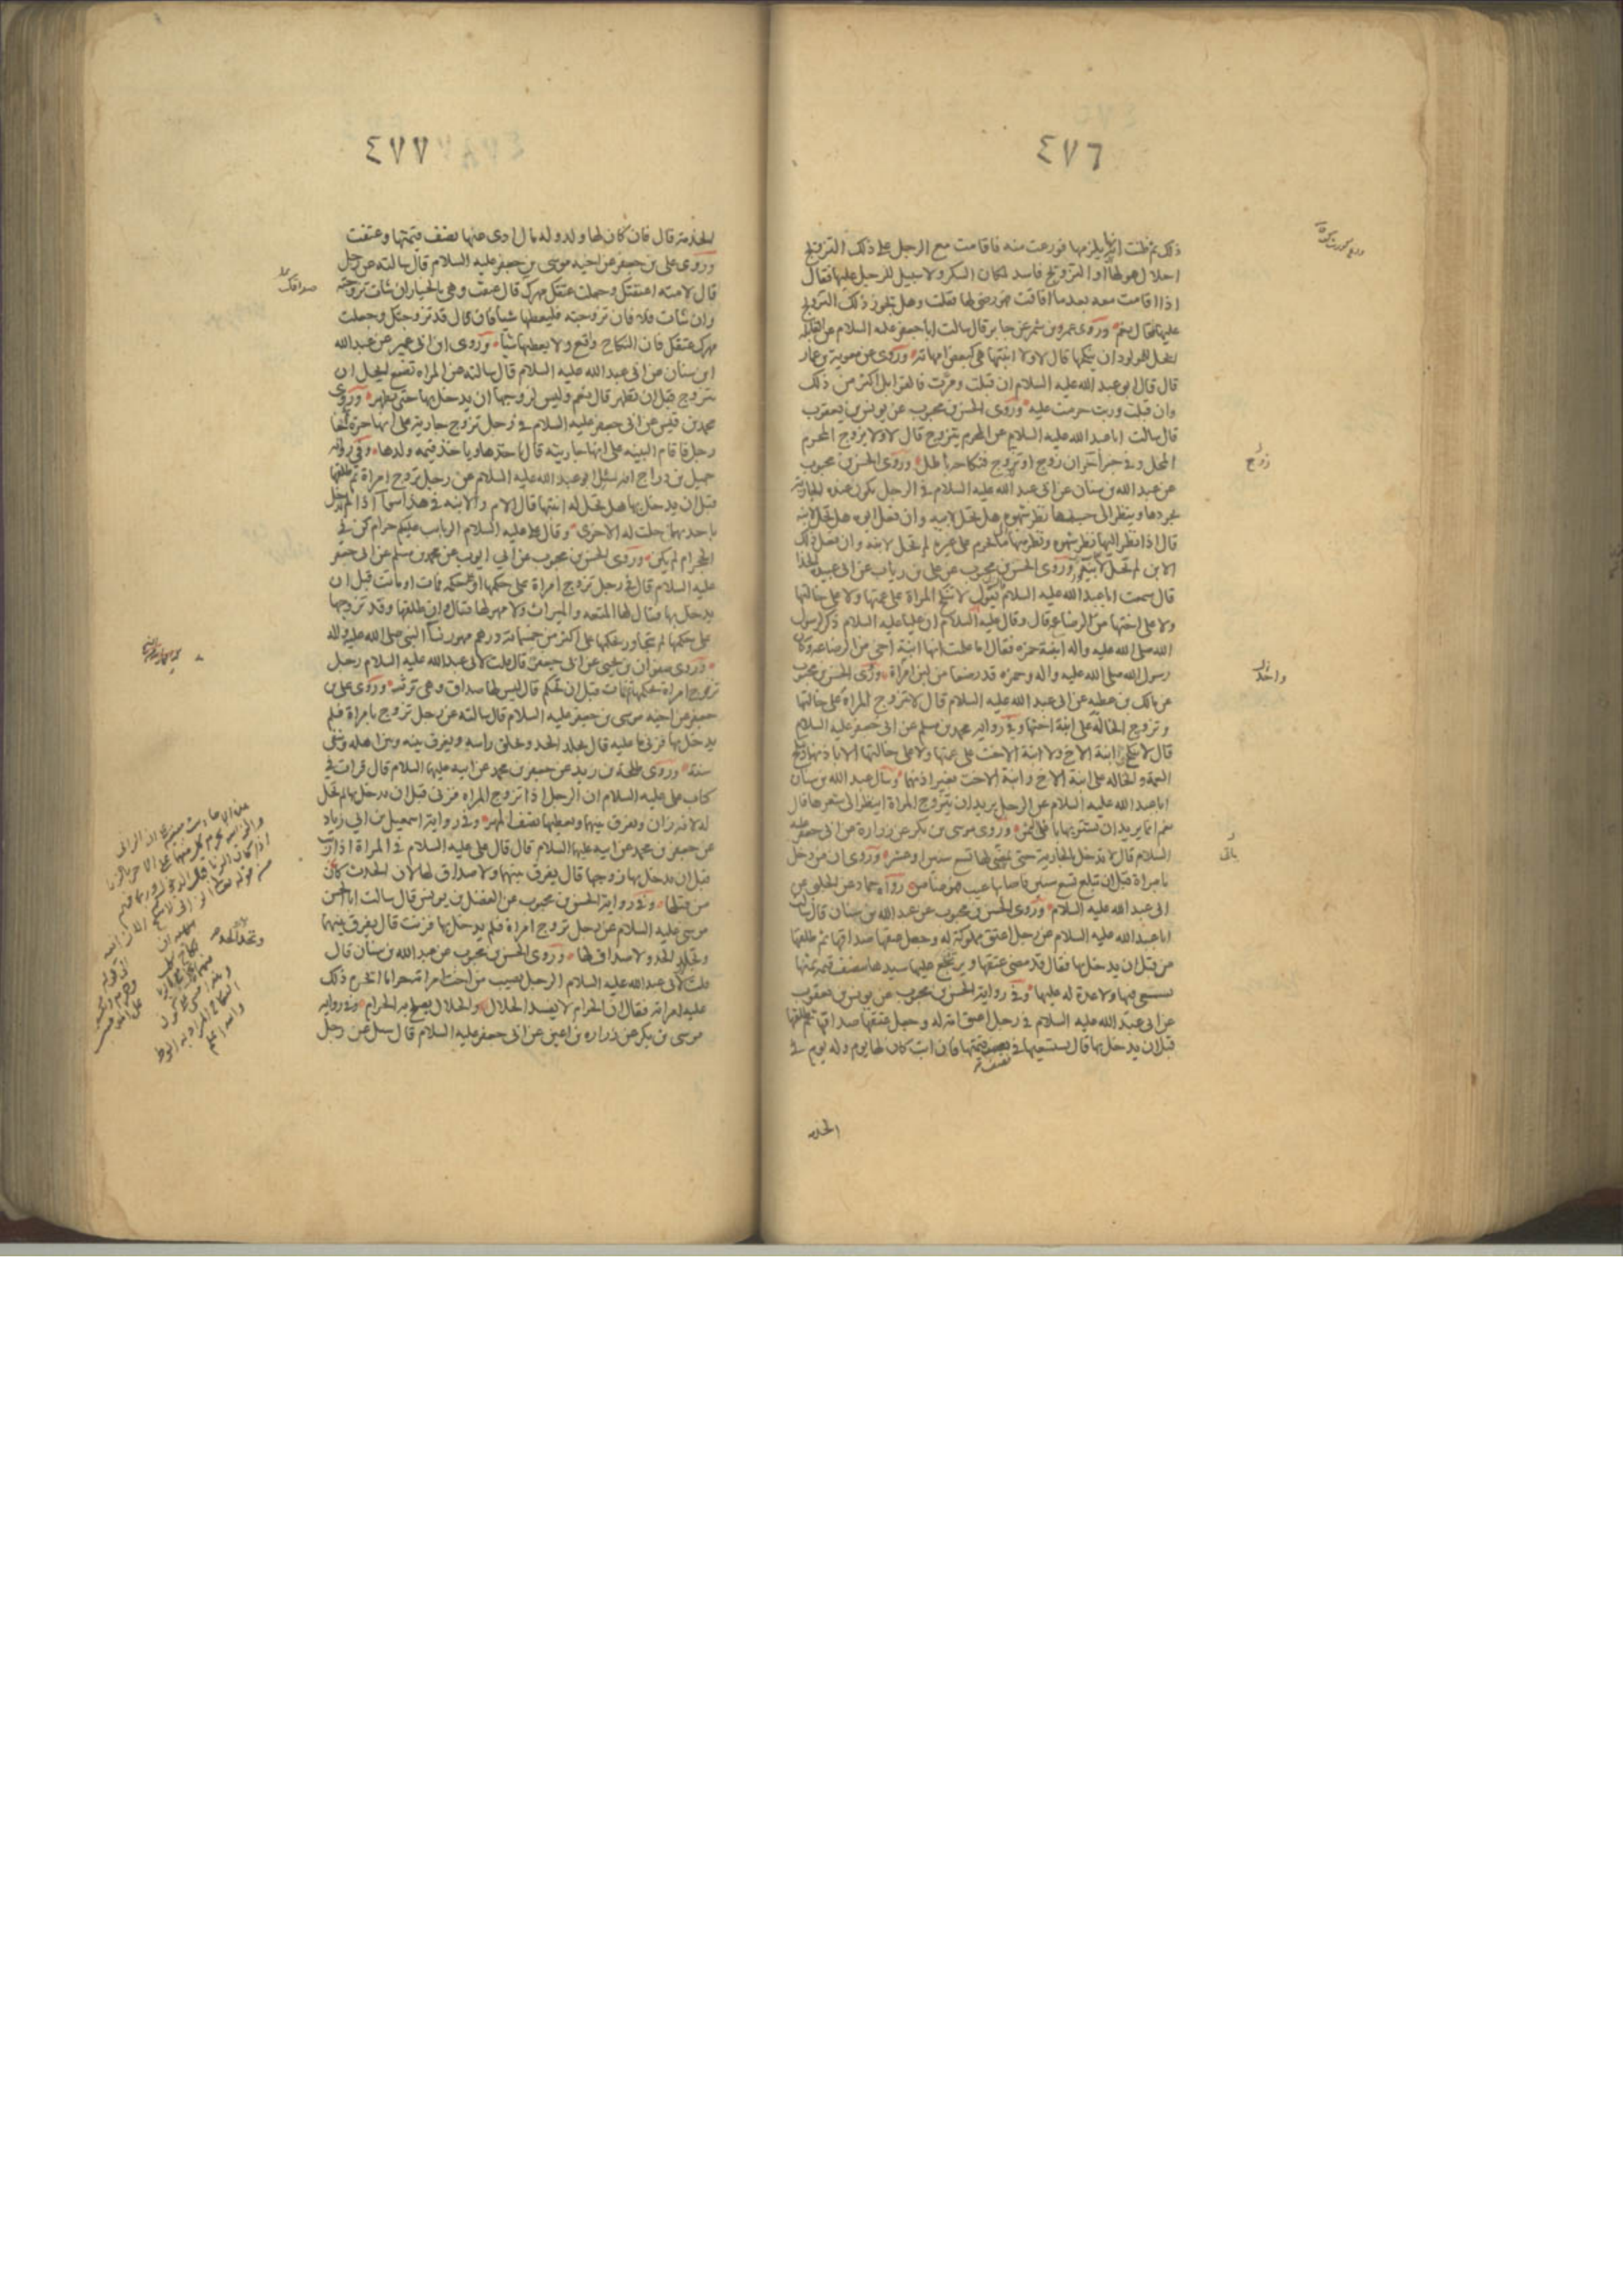 ٤٧٦
ذلك ثم ظنت انه يلزمها فورعت منه فاقامت مع الرجل على ذلك التزويج
احلال هو لها او التزويج فاسد لمكان السكر ولا سبيل للرجل عليها فقال
اذا اقامت معه بعد ما افاقت فهو رضى لها فقلت وهل يجوز ذلك التزويج
عليها فقال نعم وروى عمرو بن شمر عن جابر قال سالت ابا جعفر عليه السلام عن القابلة
ايحل للمولود ان ينكحها قال لا ولا ابنتها هي كبعض امهاته وروى عن معوية بن عمار
قال قال ابو عبد الله عليه السلام ان قبلت ومرت فالقوابل اكثر من ذلك
وان قبلت وربت حرمت عليه وروى الحسن بن محبوب عن يونس بن يعقوب
قال سالت ابا عبد الله عليه السلام عن المحرم يتزوج قال لا ولا يزوج المحرم
المحل وفي خبر اخر ان زوج او تزوج فنكاحه باطل وروى الحسن بن محبوب
عن عبد الله بن سنان عن ابى عبد الله عليه السلام في الرجل تكون عنده الجارية
يجردها وينظر الى جسدها نظر شهوة هل تحل لابيه وان فعل ابوه هل تحل لابنه
قال اذا نظر اليها نظر شهوة ونظر منها ما يحرم على غيره لم تحل لابنه وان فعل ذلك
الابن لم تحل لابيه وروى الحسن بن محبوب عن على بن رياب عن ابى عبيدة الحذا
قال سمعت ابا عبد الله عليه السلام يقول لا تنكح المراة على عمتها ولا على خالتها
ولا على اختها من الرضاعة قال وقال عليه السلام ان عليا عليه السلام ذكر لرسول
الله صلى الله عليه واله ابنة حمزه فقال اما علمت انها ابنة اخى من الرضاعه وكان
رسول الله صلى الله عليه واله وحمزه قد رضعا من لبن امراة وروى الحسن بن محبوب
عن مالك بن عطيه عن ابى عبد الله عليه السلام قال لا تتزوج المراة على خالتها
وتزوج الخالة على ابنة اختها وفي رواية محمد بن مسلم عن ابى جعفر عليه السلام
قال لا تنكح ابنة الاخ ولا ابنة الاخت على عمتها ولا على خالتها الا باذنهما وتنكح
العمة والخالة على ابنة الاخ وابنة الاخت بغير اذنهما وسال عبد الله بن سنان
ابا عبد الله عليه السلام عن الرجل يريد ان يتزوج المراة اينظر الى شعرها قال
نعم انما يريد ان يشتريها باغلى الثمن وروى موسى بن بكر عن زرارة عن ابى جعفر عليه
السلام قال لا تدخل بالجارية حتى يمضى لها تسع سنين او عشر وروى ان من دخل
بامراة قبل ان تبلغ تسع سنين فاصابها عيب فهو ضامن رواه حماد عن الحلبى عن
ابى عبد الله عليه السلام وروى الحسن بن محبوب عن عبد الله بن سنان قال سالت
ابا عبد الله عليه السلام عن رجل اعتق مملوكة له وجعل عتقها صداقها ثم طلقها
من قبل ان يدخل بها فقال قد مضى عتقها ويرتجع عليها سيدها بنصف قيمة ثمنها
تسعى فيها ولا عدة له عليها وفي رواية الحسن بن محبوب عن يونس بن يعقوب
عن ابى عبد الله عليه السلام في رجل اعتق امة له وجعل عتقها صداقها ثم طلقها
قبل ان يدخل بها قال يستسعيها في نصف قيمتها فان ابت كان لها يوم وله يوم في
الخدمة
زوج
واحد
ياتى
٤٧٧
الخدمة قال فان كان لها ولد وله مال ادى عنها نصف قيمتها وعتقت
وروى على بن جعفر عن اخيه موسى بن جعفر عليه السلام قال سالته عن رجل
قال لامته اعتقتك وجعلت عتقك مهرك قال عتقت وهي بالخيار ان شات تزوجته
وان شات فلا فان تزوجته فليعطها شيئا فان قال قد تزوجتك وجعلت
مهرك عتقك فان النكاح واقع ولا يعطيها شيئا وروى ابن ابى عمير عن عبد الله
ابن سنان عن ابى عبد الله عليه السلام قال سالته عن المراه تضع ايحل ان
تتزوج قبل ان تطهر قال نعم وليس لزوجها ان يدخل بها حتى تطهر وروى
محمد بن قيس عن ابى جعفر عليه السلام في رجل تزوج جارية على انها حرة ثم جا
رجل فاقام البينه على انها جاريته قال ياخذها وياخذ قيمه ولدها وفي رواية
جميل بن دراج انه سئل ابو عبد الله عليه السلام عن رجل تزوج امراة ثم طلقها
قبل ان يدخل بها هل تحل له ابنتها قال الام والابنه في هذا سوا اذا لم يدخل
باحديهما حلت له الاخرى وقال على عليه السلام الربايب عليكم حرام كن في
الحجر ام لم يكن وروى الحسن بن محبوب عن ابي ايوب عن محمد بن مسلم عن ابى جعفر
عليه السلام قال في رجل تزوج امراة على حكمها او على حكمه فمات او ماتت قبل ان
يدخل بها فقال لها المتعه والميراث ولا مهر لها فقال وان طلقها وقد تزوجها
على حكمها لم يتجاوز بحكمها على اكثر من خمسمائة درهم مهور نسا النبي صلى الله عليه واله
وروى صفوان بن يحيى عن ابى جعفر قال قلت لابى عبد الله عليه السلام رجل
تزوج امراة بحكمها ثم مات قبل ان تحكم قال ليس لها صداق وهي ترثه وروى على بن
جعفر عن اخيه موسى بن جعفر عليه السلام قال سالته عن رجل تزوج بامراة فلم
يدخل بها فزنى ما عليه قال يجلد الحد ويحلق راسه ويفرق بينه وبين اهله وينفى
سنة وروى طلحة بن زيد عن جعفر بن محمد عن ابيه عليهما السلام قال قرات في
كتاب على عليه السلام ان الرجل اذا تزوج المراه فزنى قبل ان يدخل بها لم تحل
له لانه زان ويفرق بينهما ويعطيها نصف المهر وفي رواية اسمعيل بن ابي زياد
عن جعفر بن محمد عن ابيه عليهما السلام قال قال على عليه السلام في المراة اذا زنت
قبل ان يدخل بها زوجها قال يفرق بينهما ولا صداق لها لان الحدث كان
من قبلها وفي رواية الحسن بن محبوب عن الفضل بن يونس قال سالت ابا الحسن
موسى عليه السلام عن رجل تزوج امراة فلم يدخل بها فزنت قال يفرق بينهما
وتجلد الحد ولا صداق لها وروى الحسن بن محبوب عن عبد الله بن سنان قال
قلت لابى عبد الله عليه السلام الرجل يصيب من اخت امراته حراما ايحرم ذلك
عليه امراته فقال ان الحرام لا يفسد الحلال والحلال يصلح به الحرام وفي رواية
موسى بن بكر عن زراره بن اعين عن ابى جعفر عليه السلام قال سئل عن رجل
صداقك